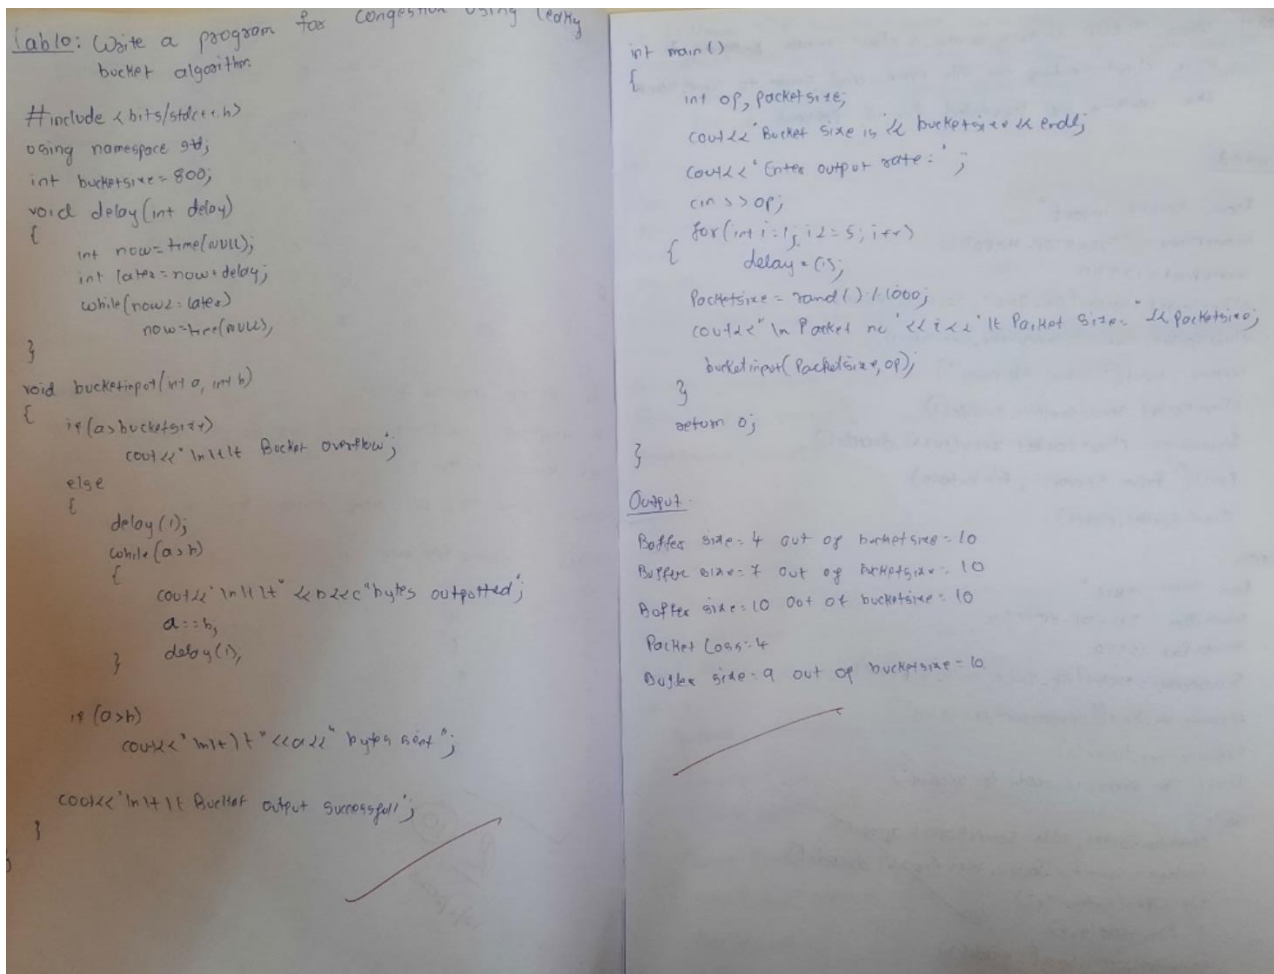 Lab 10: Write a program for congestion using leaky
bucket algorithm.
#include <bits/stdc++.h>
using namespace std;
int bucketsize = 800;
void delay(int delay)
{
int now = time(NULL);
int later = now + delay;
while(now <= later)
now = time(NULL);
}
void bucketinput(int a, int b)
{
if(a > bucketsize)
cout<<"\n\t\t Bucket overflow";
else
{
delay(1);
while(a > b)
{
cout<<"\n\t\t" <<b<<" bytes outputted";
a -= b;
delay(1);
}
if (a > b)
cout<<"\n\t\t" <<a<<" bytes sent";
cout<<"\n\t\t Bucket output successful";
}
}
int main()
{
int op, packetsize;
cout<<"Bucket size is "<< bucketsize << endl;
cout<<"Enter output rate: ";
cin >> op;
for(int i=1; i<=5; i++)
{
delay
Packetsize = rand() % 1000;
cout<<"\n Packet no "<<i<<"\t Packet size = "<< Packetsize;
bucketinput(Packetsize, op);
}
return 0;
}
Output
Buffer size = 4 out of bucketsize = 10
Buffer size = 7 out of bucketsize = 10
Buffer size = 10 out of bucketsize = 10
Packet Loss = 4
Buffer size = 9 out of bucketsize = 10